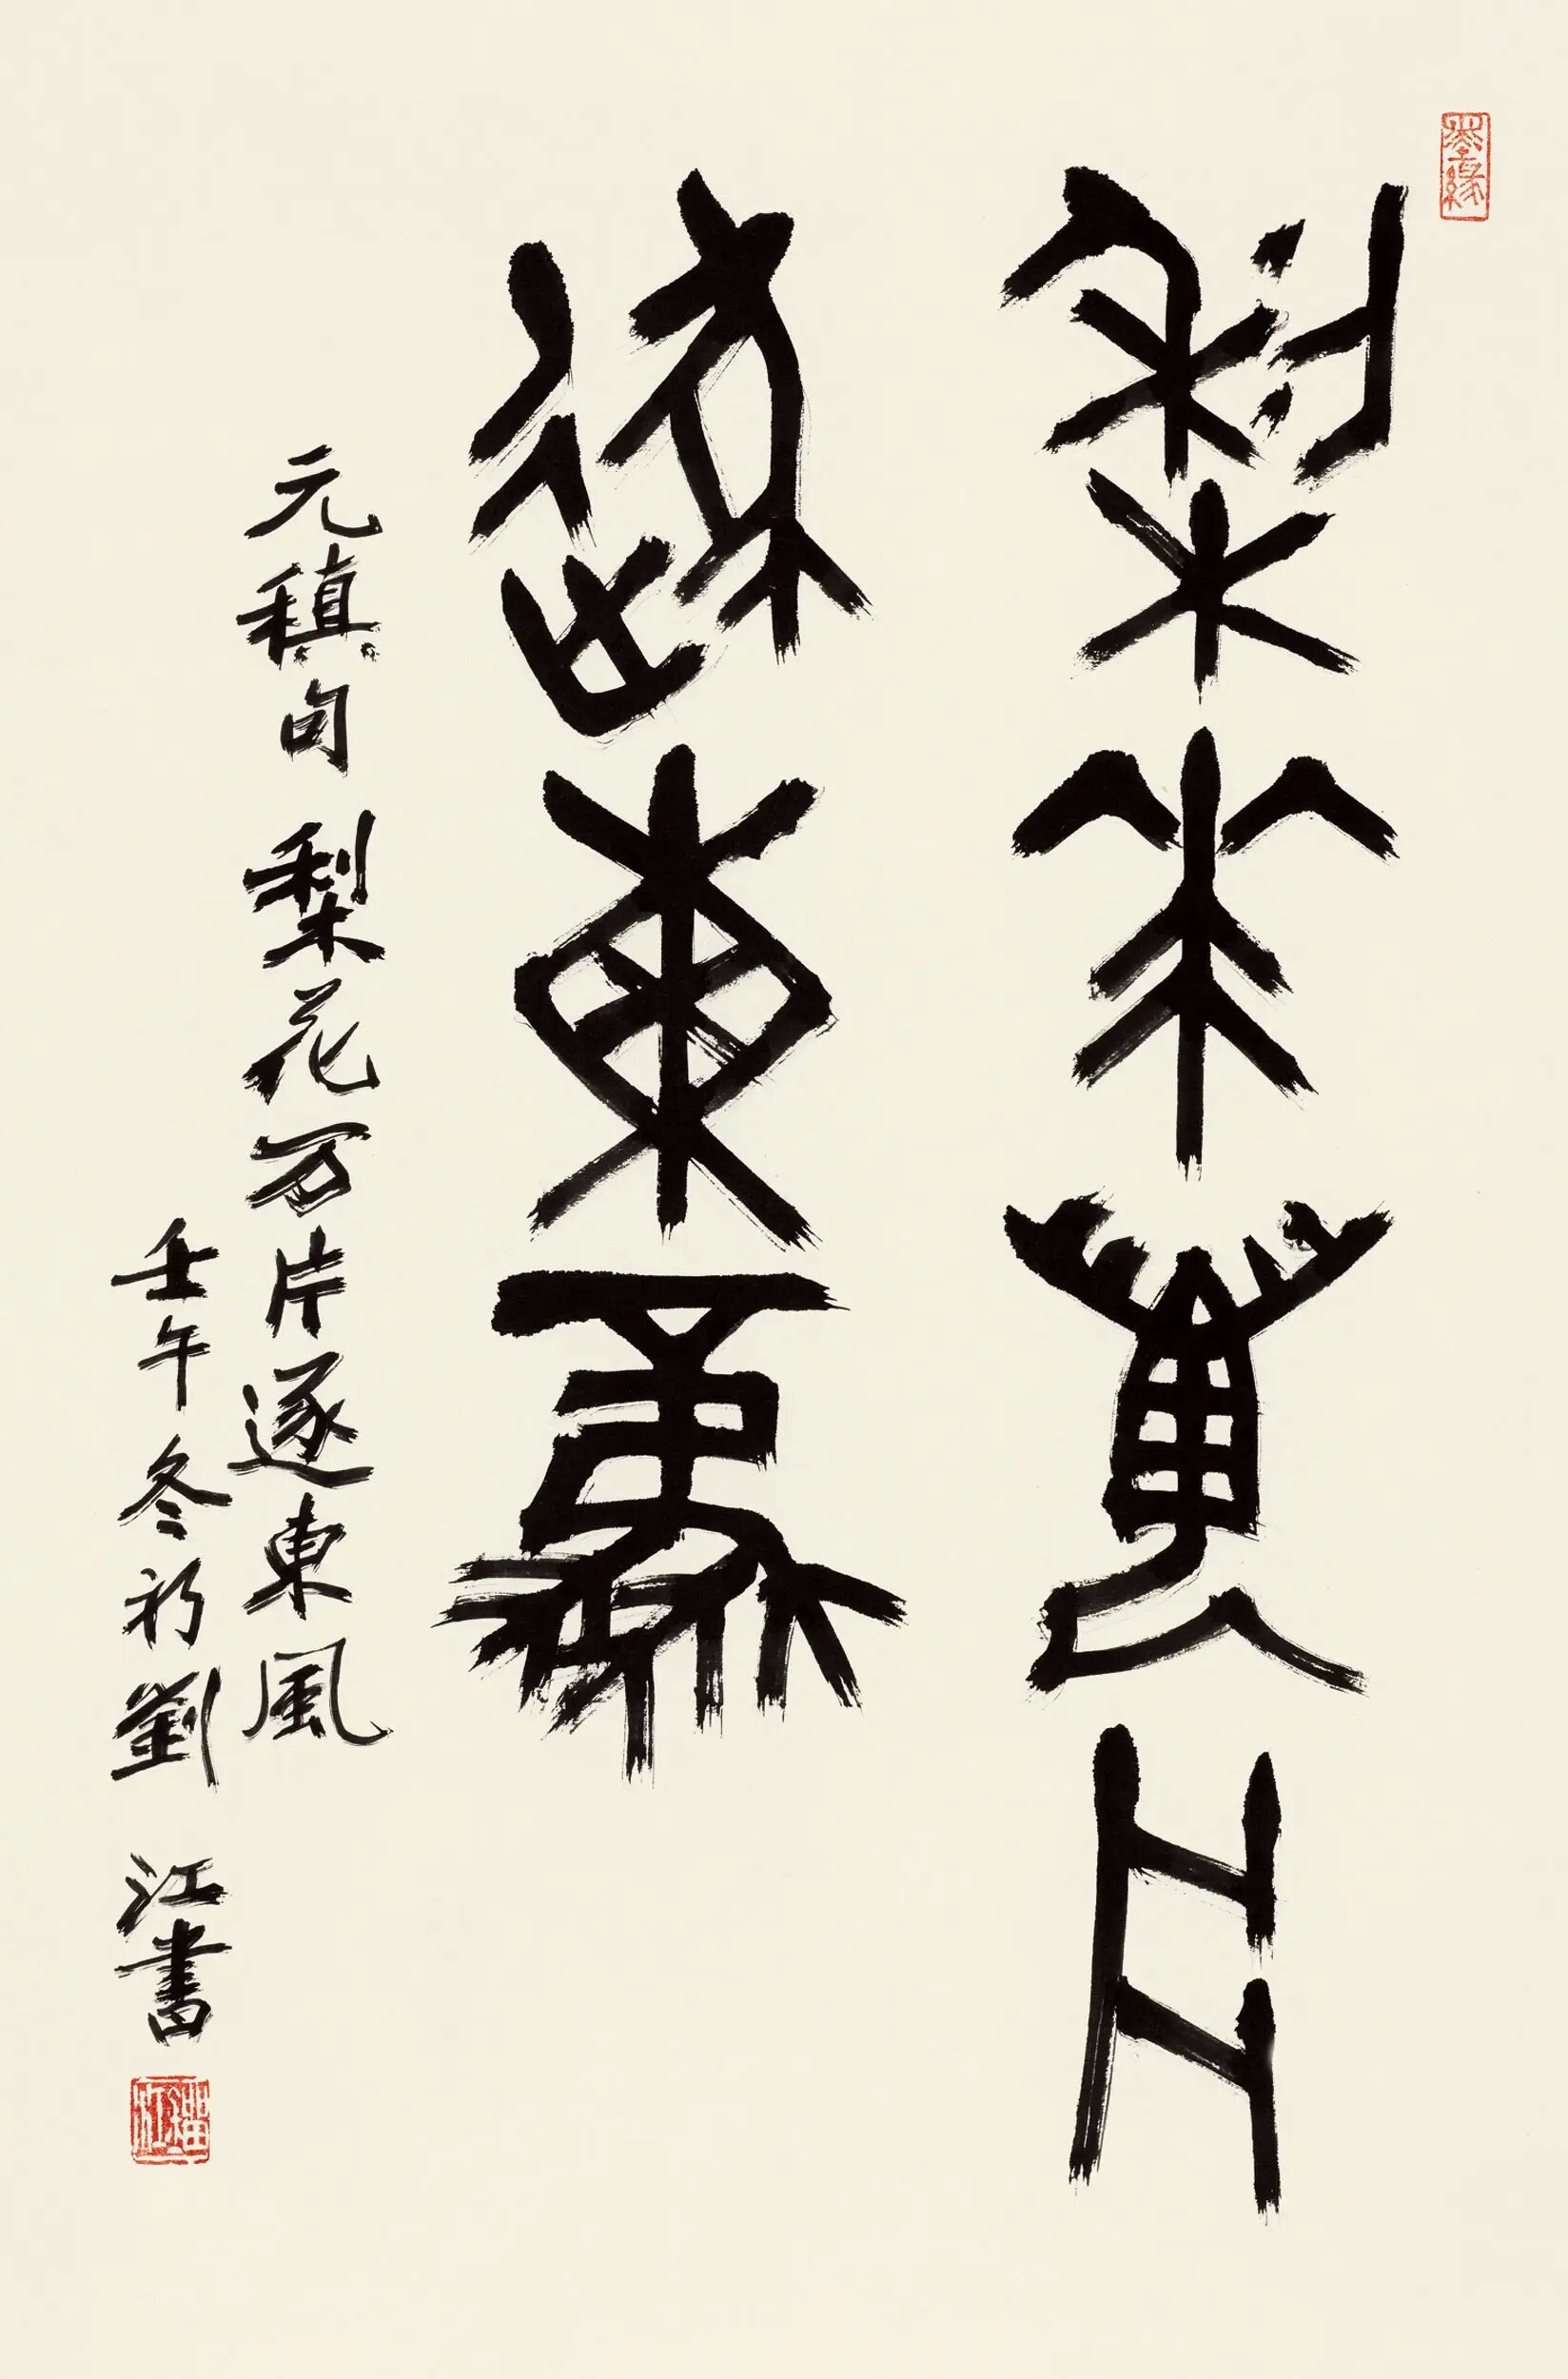 梨花萬片
逐東風
元稹句 梨花万片逐東風
壬午冬初劉江書
墨緣